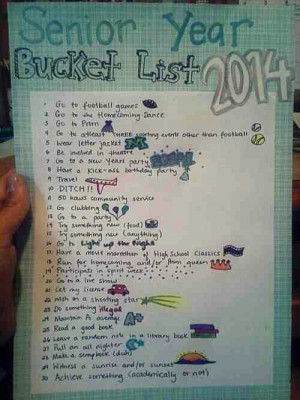 Senior Year
Bucket List 2014
1 Go to football games
2 Go to the Homecoming Dance
3 Go to Prom
4 Go to atleast THREE sporting events other than football
5 Wear letter jacket
6 Be involved in theatre
7 Go to a New Years party
8 Have a kick-ass birthday party
9 Travel
10 DITCH!!
11 50 hours community service
12 Go clubbing
13 Go to a party
14 Try something new (food)
15 Try something new (anything)
16 Go to Light up the Night
17 Have a movie marathon of High School Classics
18 Run for homecoming and/or prom queen
19 Participate in spirit week
20 Go to a live show
21 Get my license
22 Wish on a shooting star
23 Do something illegal
24 Maintain A average A+
25 Read a good book
26 Leave a random note in a library book
27 Pull an all nighter
28 Make a scrapbook (duh)
29 Witness a sunrise and/or sunset
30 Achieve something (academically or not)